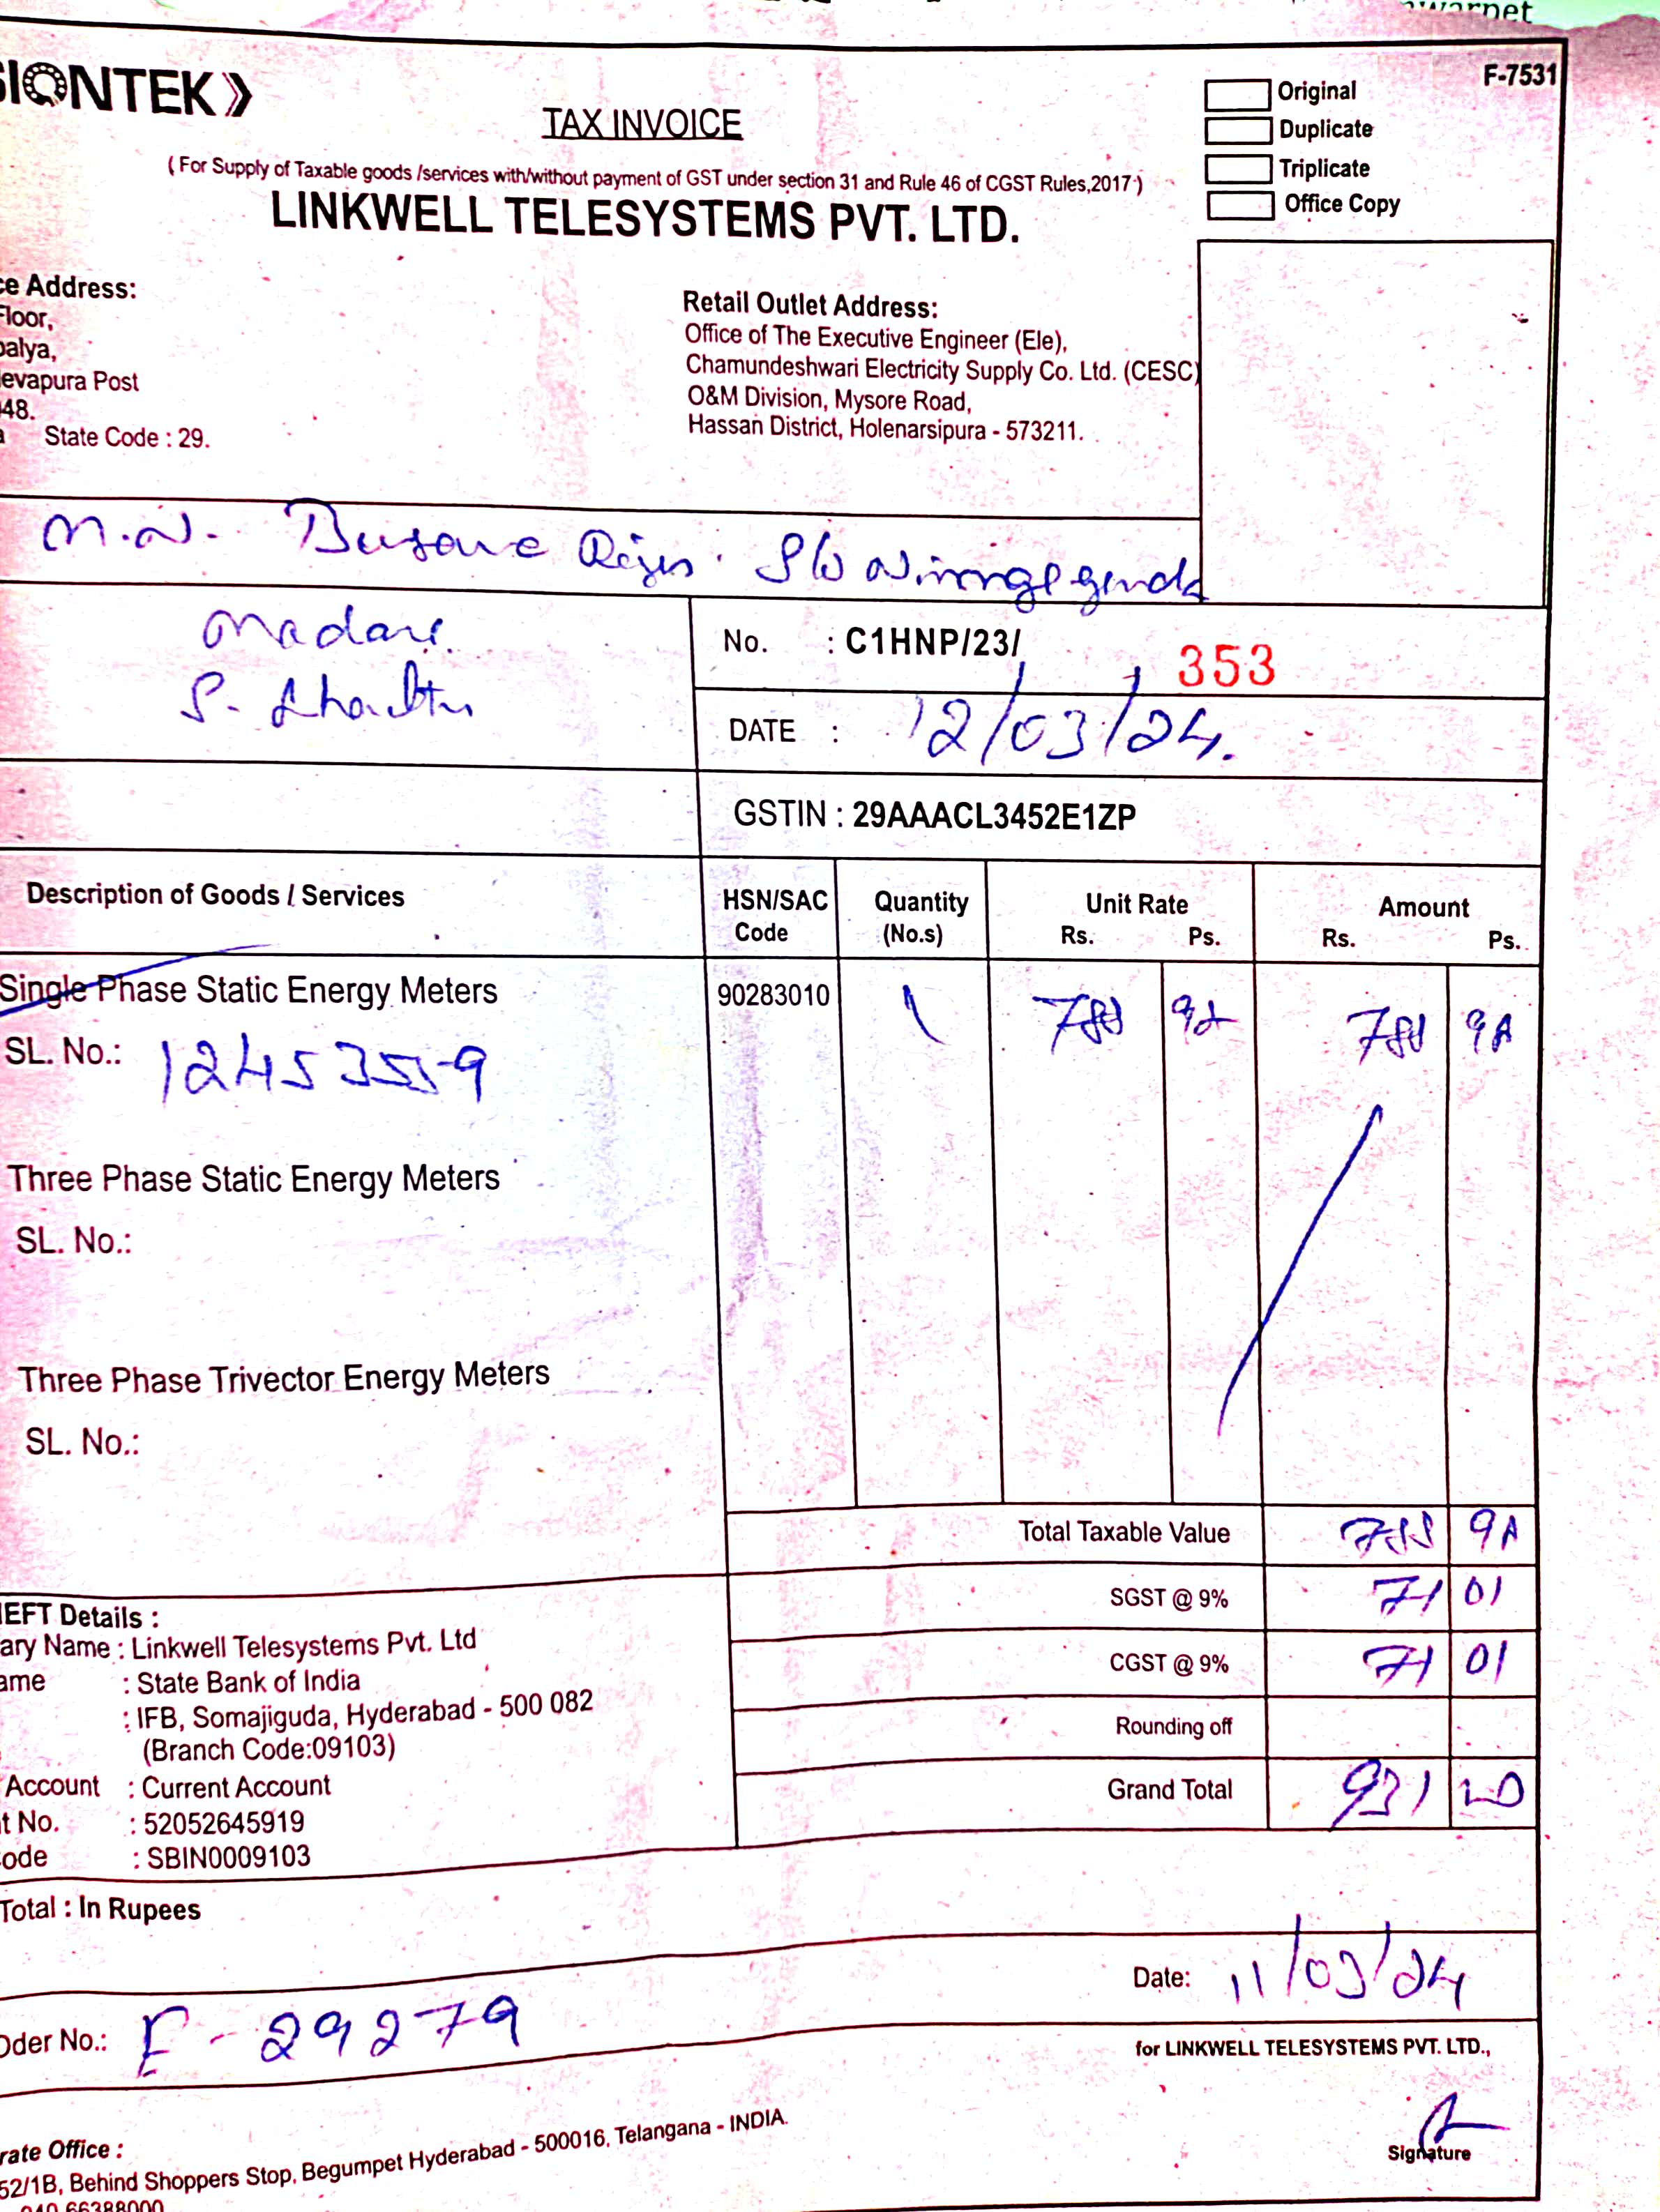 warpet
F-7531
SIONTEK
TAX INVOICE
Original
Duplicate
Triplicate
Office Copy
( For Supply of Taxable goods /services with/without payment of GST under section 31 and Rule 46 of CGST Rules,2017 )
LINKWELL TELESYSTEMS PVT. LTD.
ce Address:
Floor,
palya,
evapura Post
48.
a State Code : 29.
Retail Outlet Address:
Office of The Executive Engineer (Ele),
Chamundeshwari Electricity Supply Co. Ltd. (CESC)
O&M Division, Mysore Road,
Hassan District, Holenarsipura - 573211.
M.N. S/o
No. : C1HNP/23/ 353
DATE : 12/03/24.
GSTIN : 29AAACL3452E1ZP
Description of Goods / Services HSN/SAC Code Quantity (No.s) Unit Rate Rs. Ps. Amount Rs. Ps.
Single Phase Static Energy Meters 90283010 1
SL. No.: 12453559
Three Phase Static Energy Meters
SL. No.:
Three Phase Trivector Energy Meters
SL. No.:
Total Taxable Value
SGST @ 9% 71 01
CGST @ 9% 71 01
Rounding off
Grand Total 931
IEFT Details :
ary Name : Linkwell Telesystems Pvt. Ltd
ame : State Bank of India
: IFB, Somajiguda, Hyderabad - 500 082
(Branch Code:09103)
Account : Current Account
t No. : 52052645919
ode : SBIN0009103
Total : In Rupees
Date: 11/03/24
Oder No.: F-29279
for LINKWELL TELESYSTEMS PVT. LTD.,
Signature
rate Office :
52/1B, Behind Shoppers Stop, Begumpet Hyderabad - 500016, Telangana - INDIA.
040 66388000